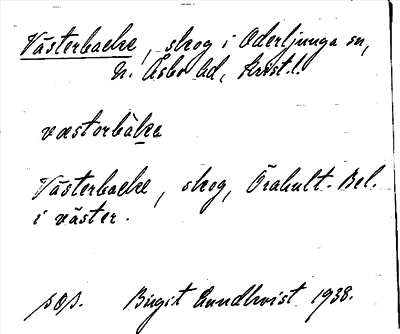 Västerbacke, skog i Oderljunga sn,
N. Åsbo hd, Krist.l.
væstorbàka
Västerbacke, skog, Örahult. Bel.
i väster.
pop. Birgit Lundkvist 1938.